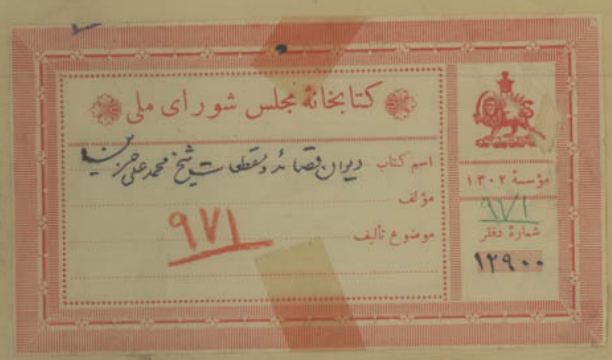 کتابخانهٔ مجلس شورای ملی
اسم کتاب دیوان قصائد و مقطعات شیخ محمد علی حزین
مؤلف
موضوع تألیف
۹۷۱
مؤسسهٔ ۱۳۰۲
۹۷۱
شمارهٔ دفتر
۱۲۹۰۰